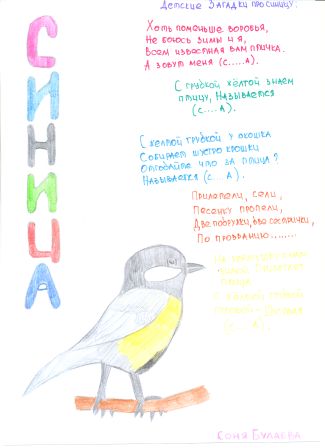 Детские Загадки про синицу:
СИНИЦА
Хоть поменьше воробья,
Не боюсь зимы и я,
Всем известная вам птичка.
А зовут меня (с.....а).
С грудкой жёлтой знаем
птицу, Называется
(с....а).
С желтой грудкой у окошка
Собирает шустро крошки
Отгадайте что за птица?
Называется (с...а).
Прилетели, сели,
Песенку пропели,
Две подружки, две сестрички,
По прозванию........
(с....а).
Соня Булаева